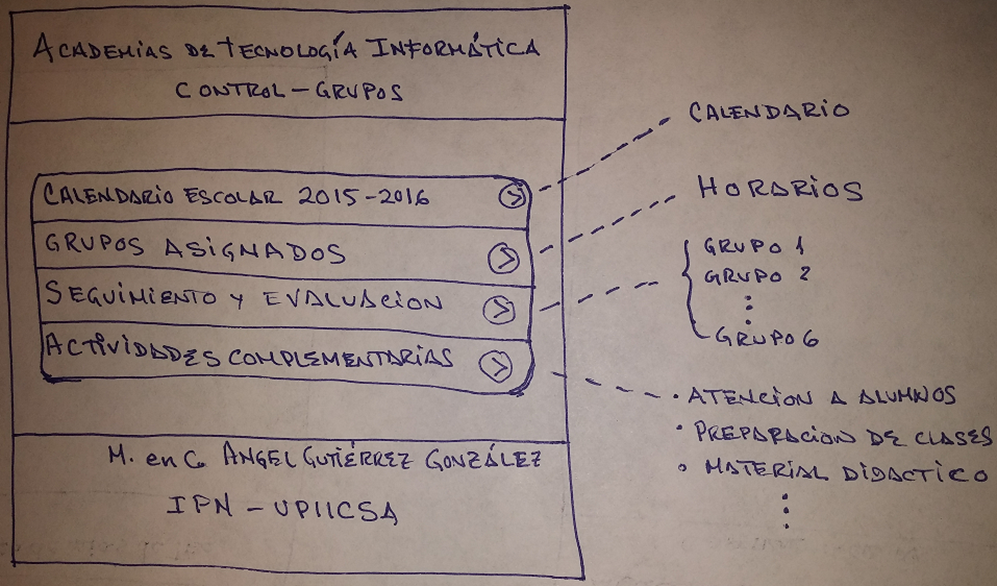 ACADEMIAS DE TECNOLOGÍA INFORMÁTICA
CONTROL - GRUPOS
CALENDARIO ESCOLAR 2015-2016
GRUPOS ASIGNADOS
SEGUIMIENTO Y EVALUACION
ACTIVIDADES COMPLEMENTARIAS
M. en C. ANGEL GUTIÉRREZ GONZÁLEZ
IPN - UPIICSA
CALENDARIO
HORARIOS
GRUPO 1
GRUPO 2
GRUPO 6
• ATENCION A ALUMNOS
• PREPARACION DE CLASES
• MATERIAL DIDACTICO